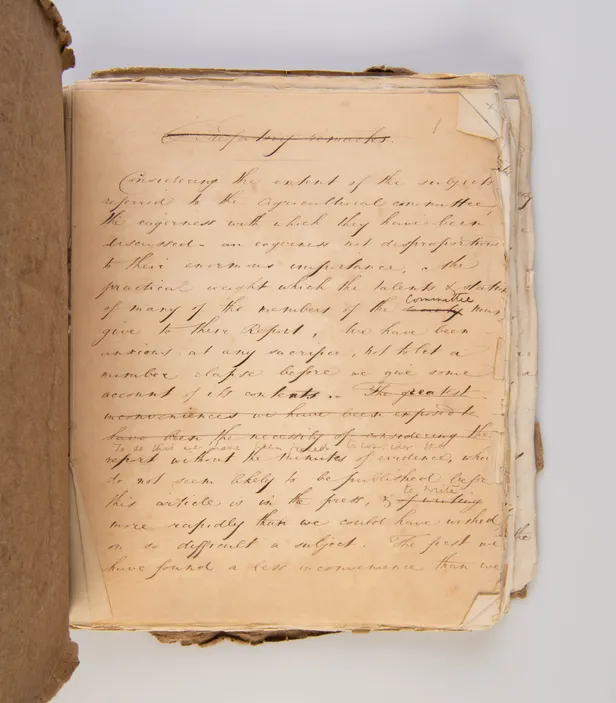 Prefatory remarks.
1
Considering the extent of the subjects
referred to the Agricultural committee,
the eagerness with which they have been
discussed – an eagerness not disproportione
to their enormous importance, & the
practical weight which the talents & station
of many of the members of the committee must
give to their Report, We have been
anxious at any sacrifice, not to let a
number elapse before we give some
account of its contents. The greatest
inconveniences we have been exposed to
have been the necessity of considering the
To do this we have been forced to consider the
report without the minutes of evidence, which
do not seem likely to be published before
this article is in the press, & of writing to write
more rapidly than we could have wished
on so difficult a subject. The first we
have found a less inconvenience than we